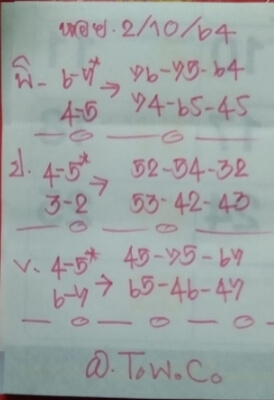 หอย. 2/10/64
พิ- 6-7* → 76-75-64
4-5 74-65-45
ป. 4-5* → 52-54-32
3-2 53-42-43
v. 4-5* → 45-75-67
6-7 65-46-47
@.T.W.C.